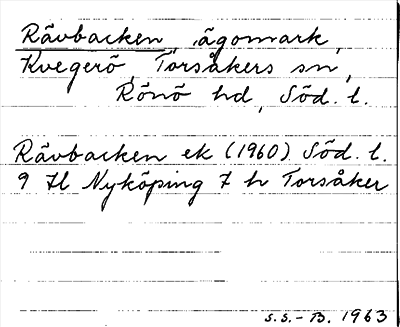 Rävbacken, ägomark,
Kvegerö, Torsåkers sn,
Rönö hd, Söd. l.
Rävbacken ek (1960) Söd. l.
9 H Nyköping 7 h Torsåker
S.S. - B. 1963